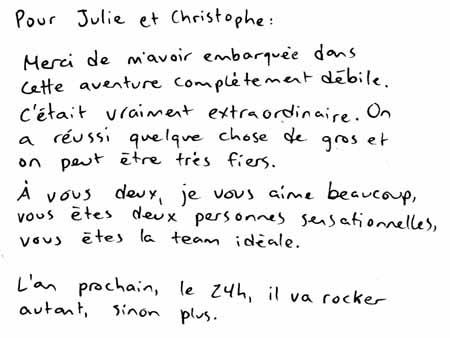 Pour Julie et Christophe:
Merci de m'avoir embarquée dans
cette aventure complètement débile.
C'était vraiment extraordinaire. On
a réussi quelque chose de gros et
on peut être très fiers.
À vous deux, je vous aime beaucoup,
vous êtes deux personnes sensationnelles,
vous êtes la team idéale.
L'an prochain, le 24h, il va rocker
autant, sinon plus.